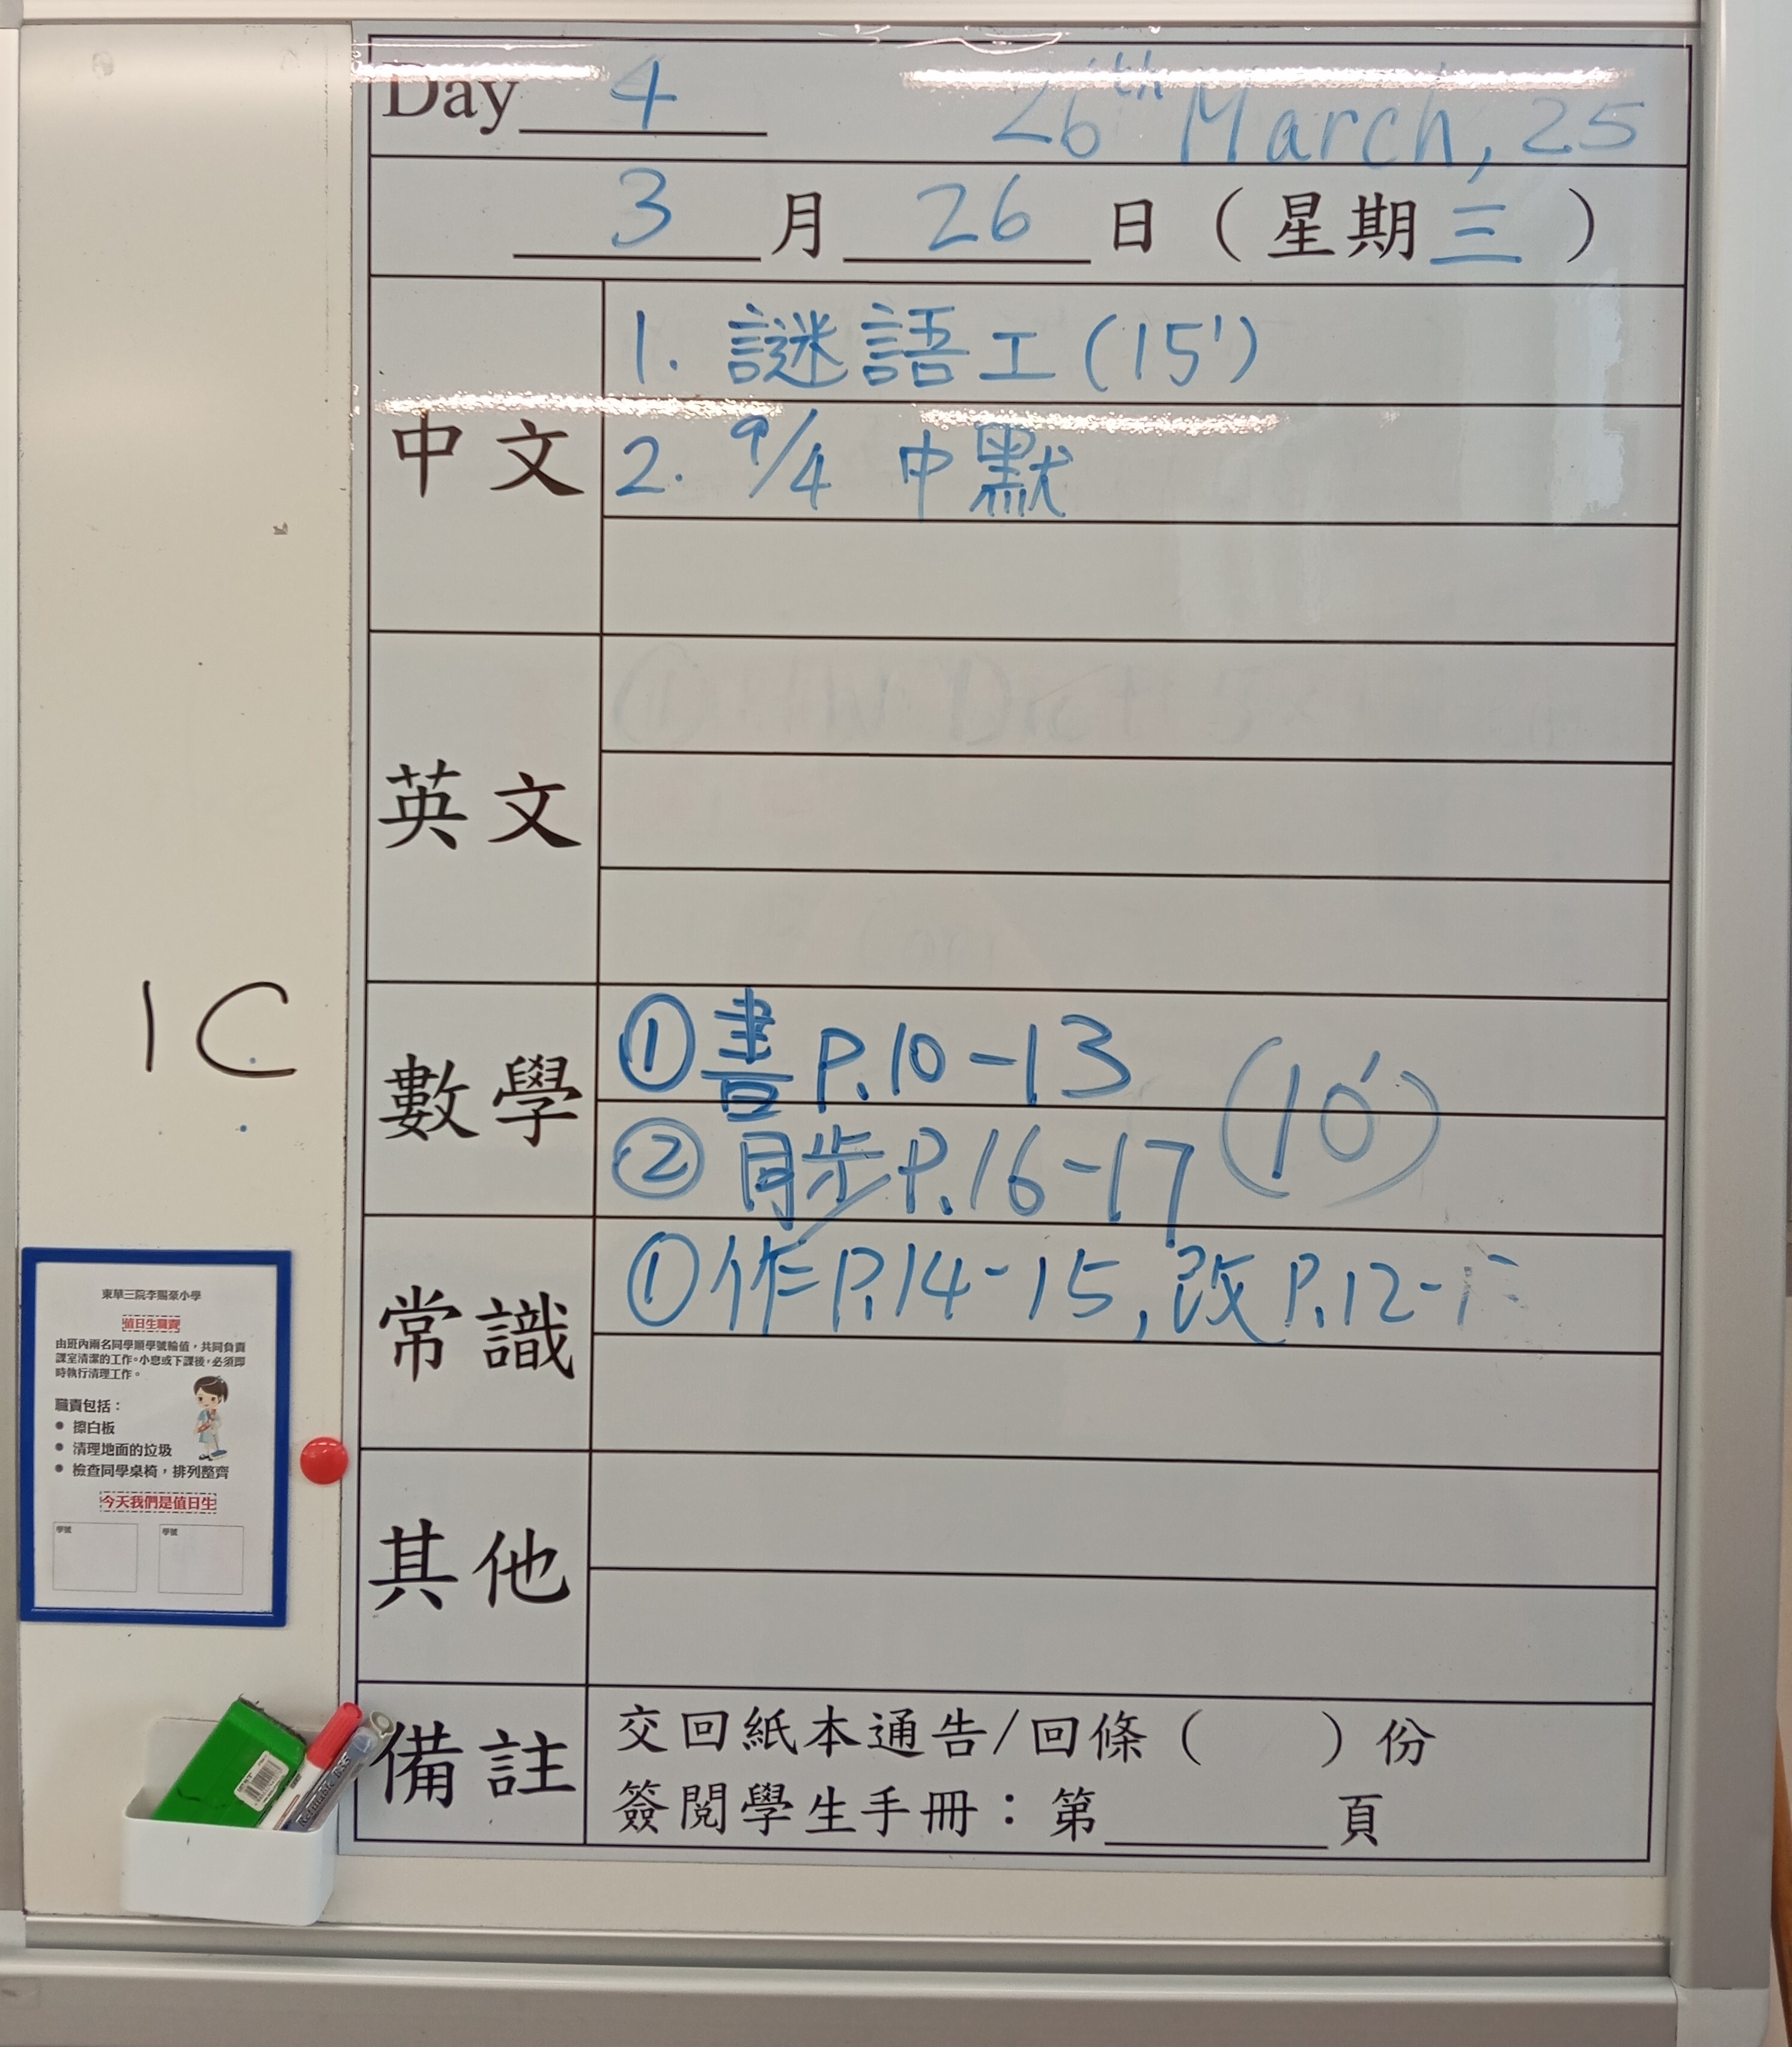 Day 4 26th March, 25
3 月 26 日（星期三）
中文
1. 謎語工(15')
2. 9/4 中默
英文
數學
① 書 P.10-13
② 同步 P.16-17 (10')
常識
① 作 P.14-15, 改 P.12-1
其他
備註
交回紙本通告/回條（ ）份
簽閱學生手冊：第____頁
1C
東華三院李賜豪小學
值日生職責
由班內兩名同學順學號輪值，共同負責
課室清潔的工作。小息或下課後，必須即
時執行清理工作。
職責包括：
● 擦白板
● 清理地面的垃圾
● 檢查同學桌椅，排列整齊
今天我們是值日生
學號 學號